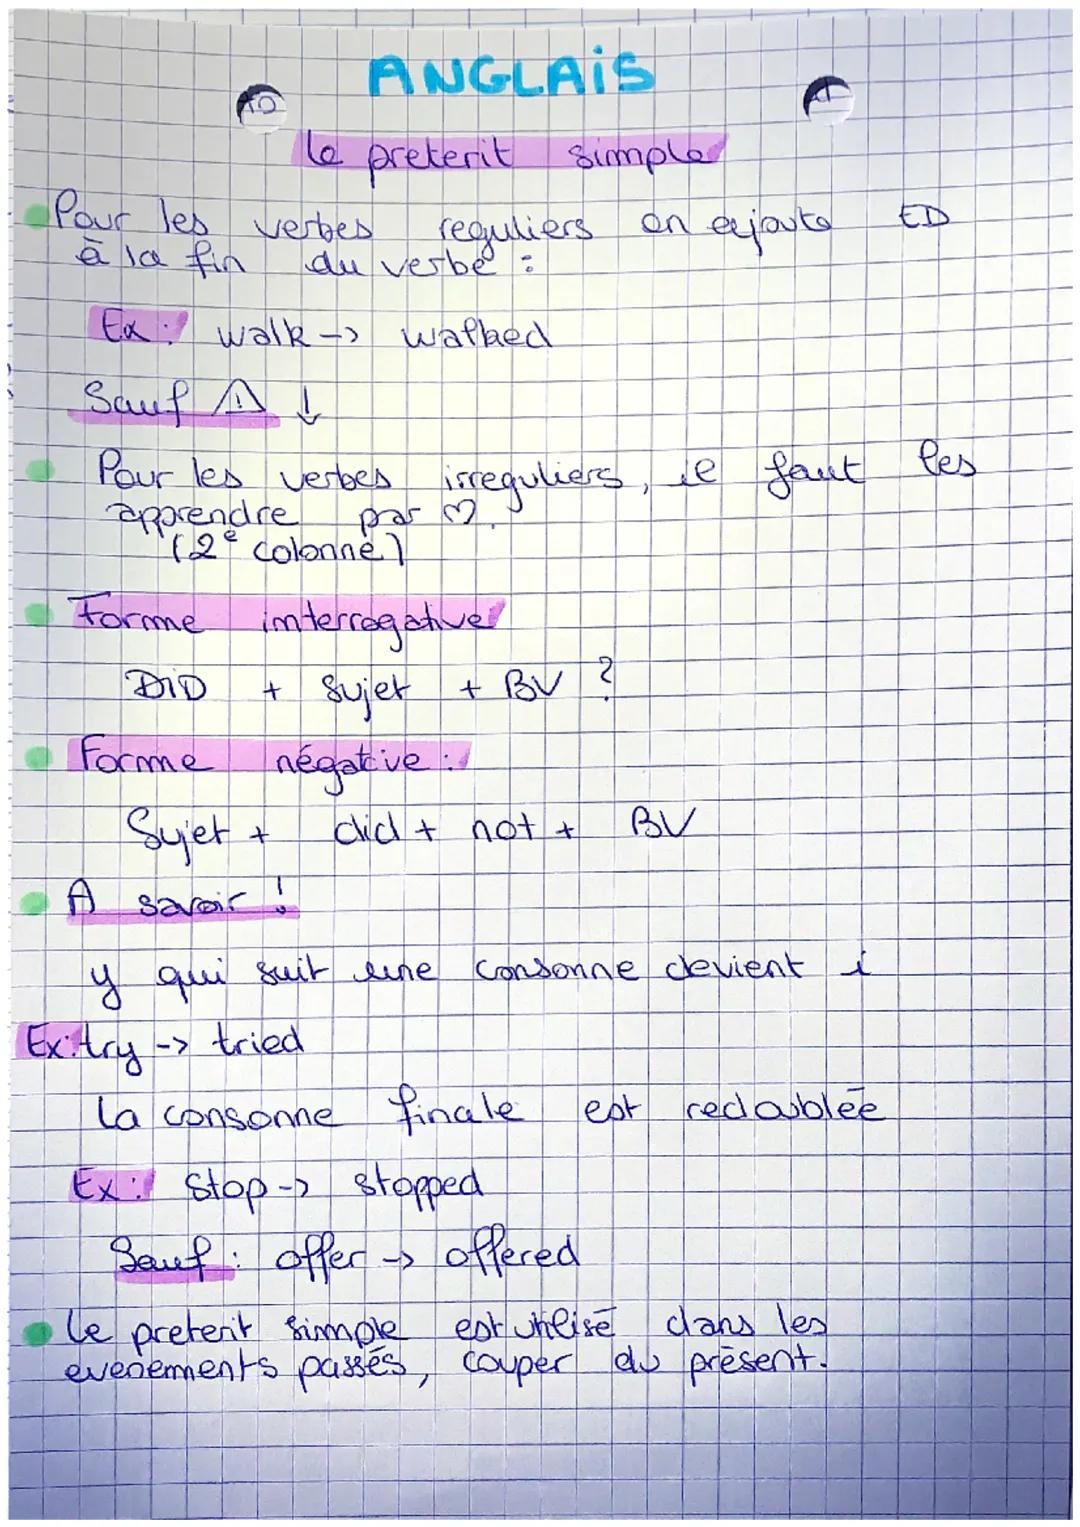 ANGLAIS
le preterit simple
Pour les verbes reguliers on ajoute ED
à la fin du verbe :
Ex : walk -> walked
Sauf ⚠ ↓
Pour les verbes irreguliers, il faut les
apprendre par ♡.
(2e colonne)
Forme interrogative
DID + Sujet + BV ?
Forme négative :
Sujet + did + not + BV
A savoir !
y qui suit une consonne devient i
Ex : try -> tried
La consonne finale est redoublée
Ex : Stop -> stopped
Sauf : offer -> offered
Le preterit simple est utilisé dans les
evenements passés, couper du présent.